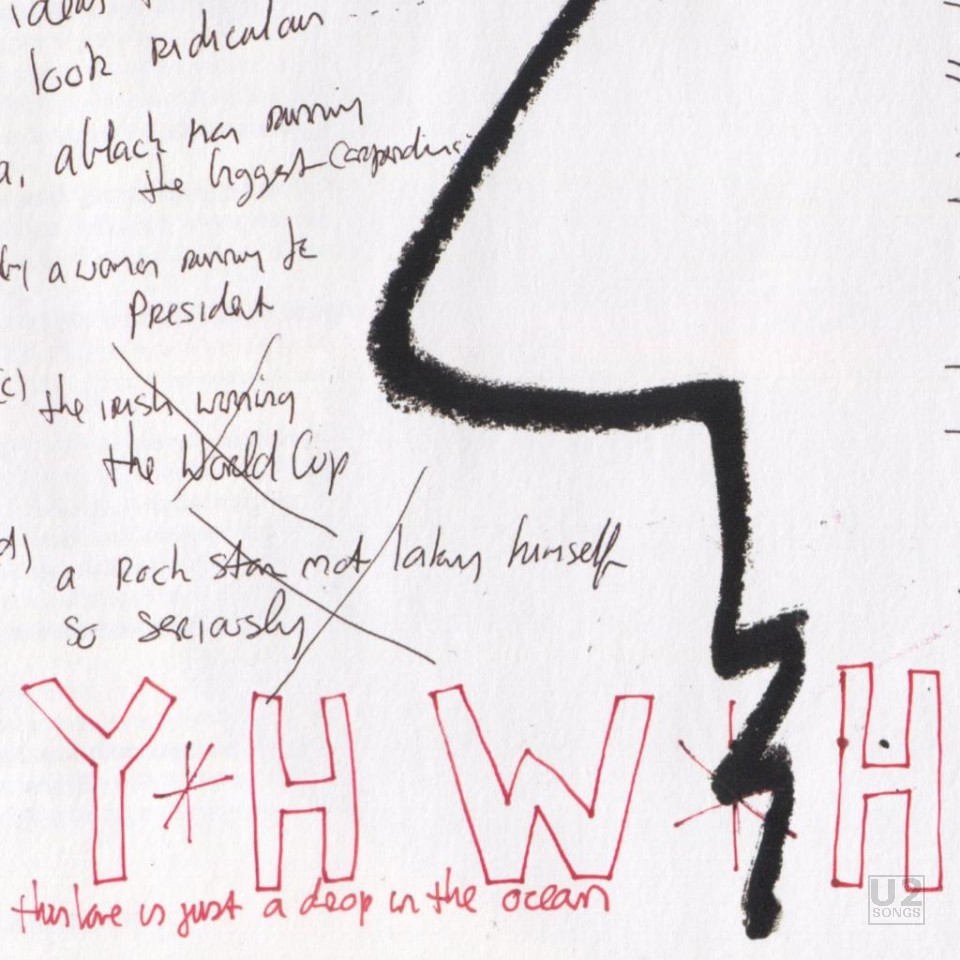 look ridiculous
a, a black man running
the biggest
b, a woman running for
President
(c) the irish winning
the World Cup
d) a Rock star not taking himself
so seriously
Y*HW*H
this love is just a drop in the ocean
U2
SONGS